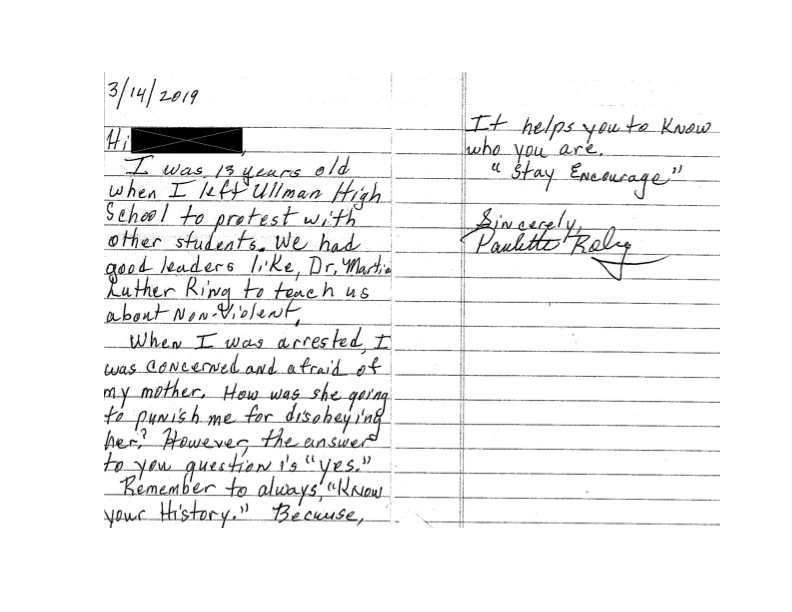 3/14/2019
Hi ,
I was 13 years old
when I left Ullman High
School to protest with
other students. We had
good leaders like, Dr. Martin
Luther King to teach us
about Non-Violent.
When I was arrested, I
was concerned and afraid of
my mother. How was she going
to punish me for disobeying
her? However, the answer
to you question is "yes."
Remember to always, "Know
your History." Because,
It helps you to Know
who you are.
"Stay Encourage"
Sincerely,
Paulette Roby